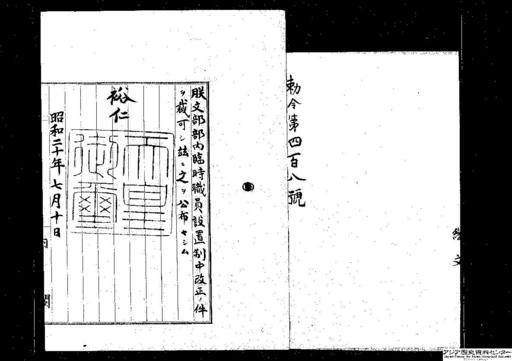 勅令第四百八號
朕文部部内臨時職員設置制中改正ノ件
ヲ裁可シ茲ニ之ヲ公布セシム
裕仁
天皇御璽
昭和二十年七月十日
内閣
アジア歴史資料センター
Japan Center for Asian Historical Records